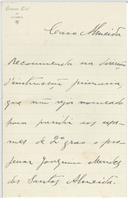 Caro Almeida
Recommenda na Direcção
d'instrucção primaria,
que não seja nomeado
para presidir aos exa-
mes de 2º grau o pro-
fessor Joaquim Mendes
dos Santos Almeida.